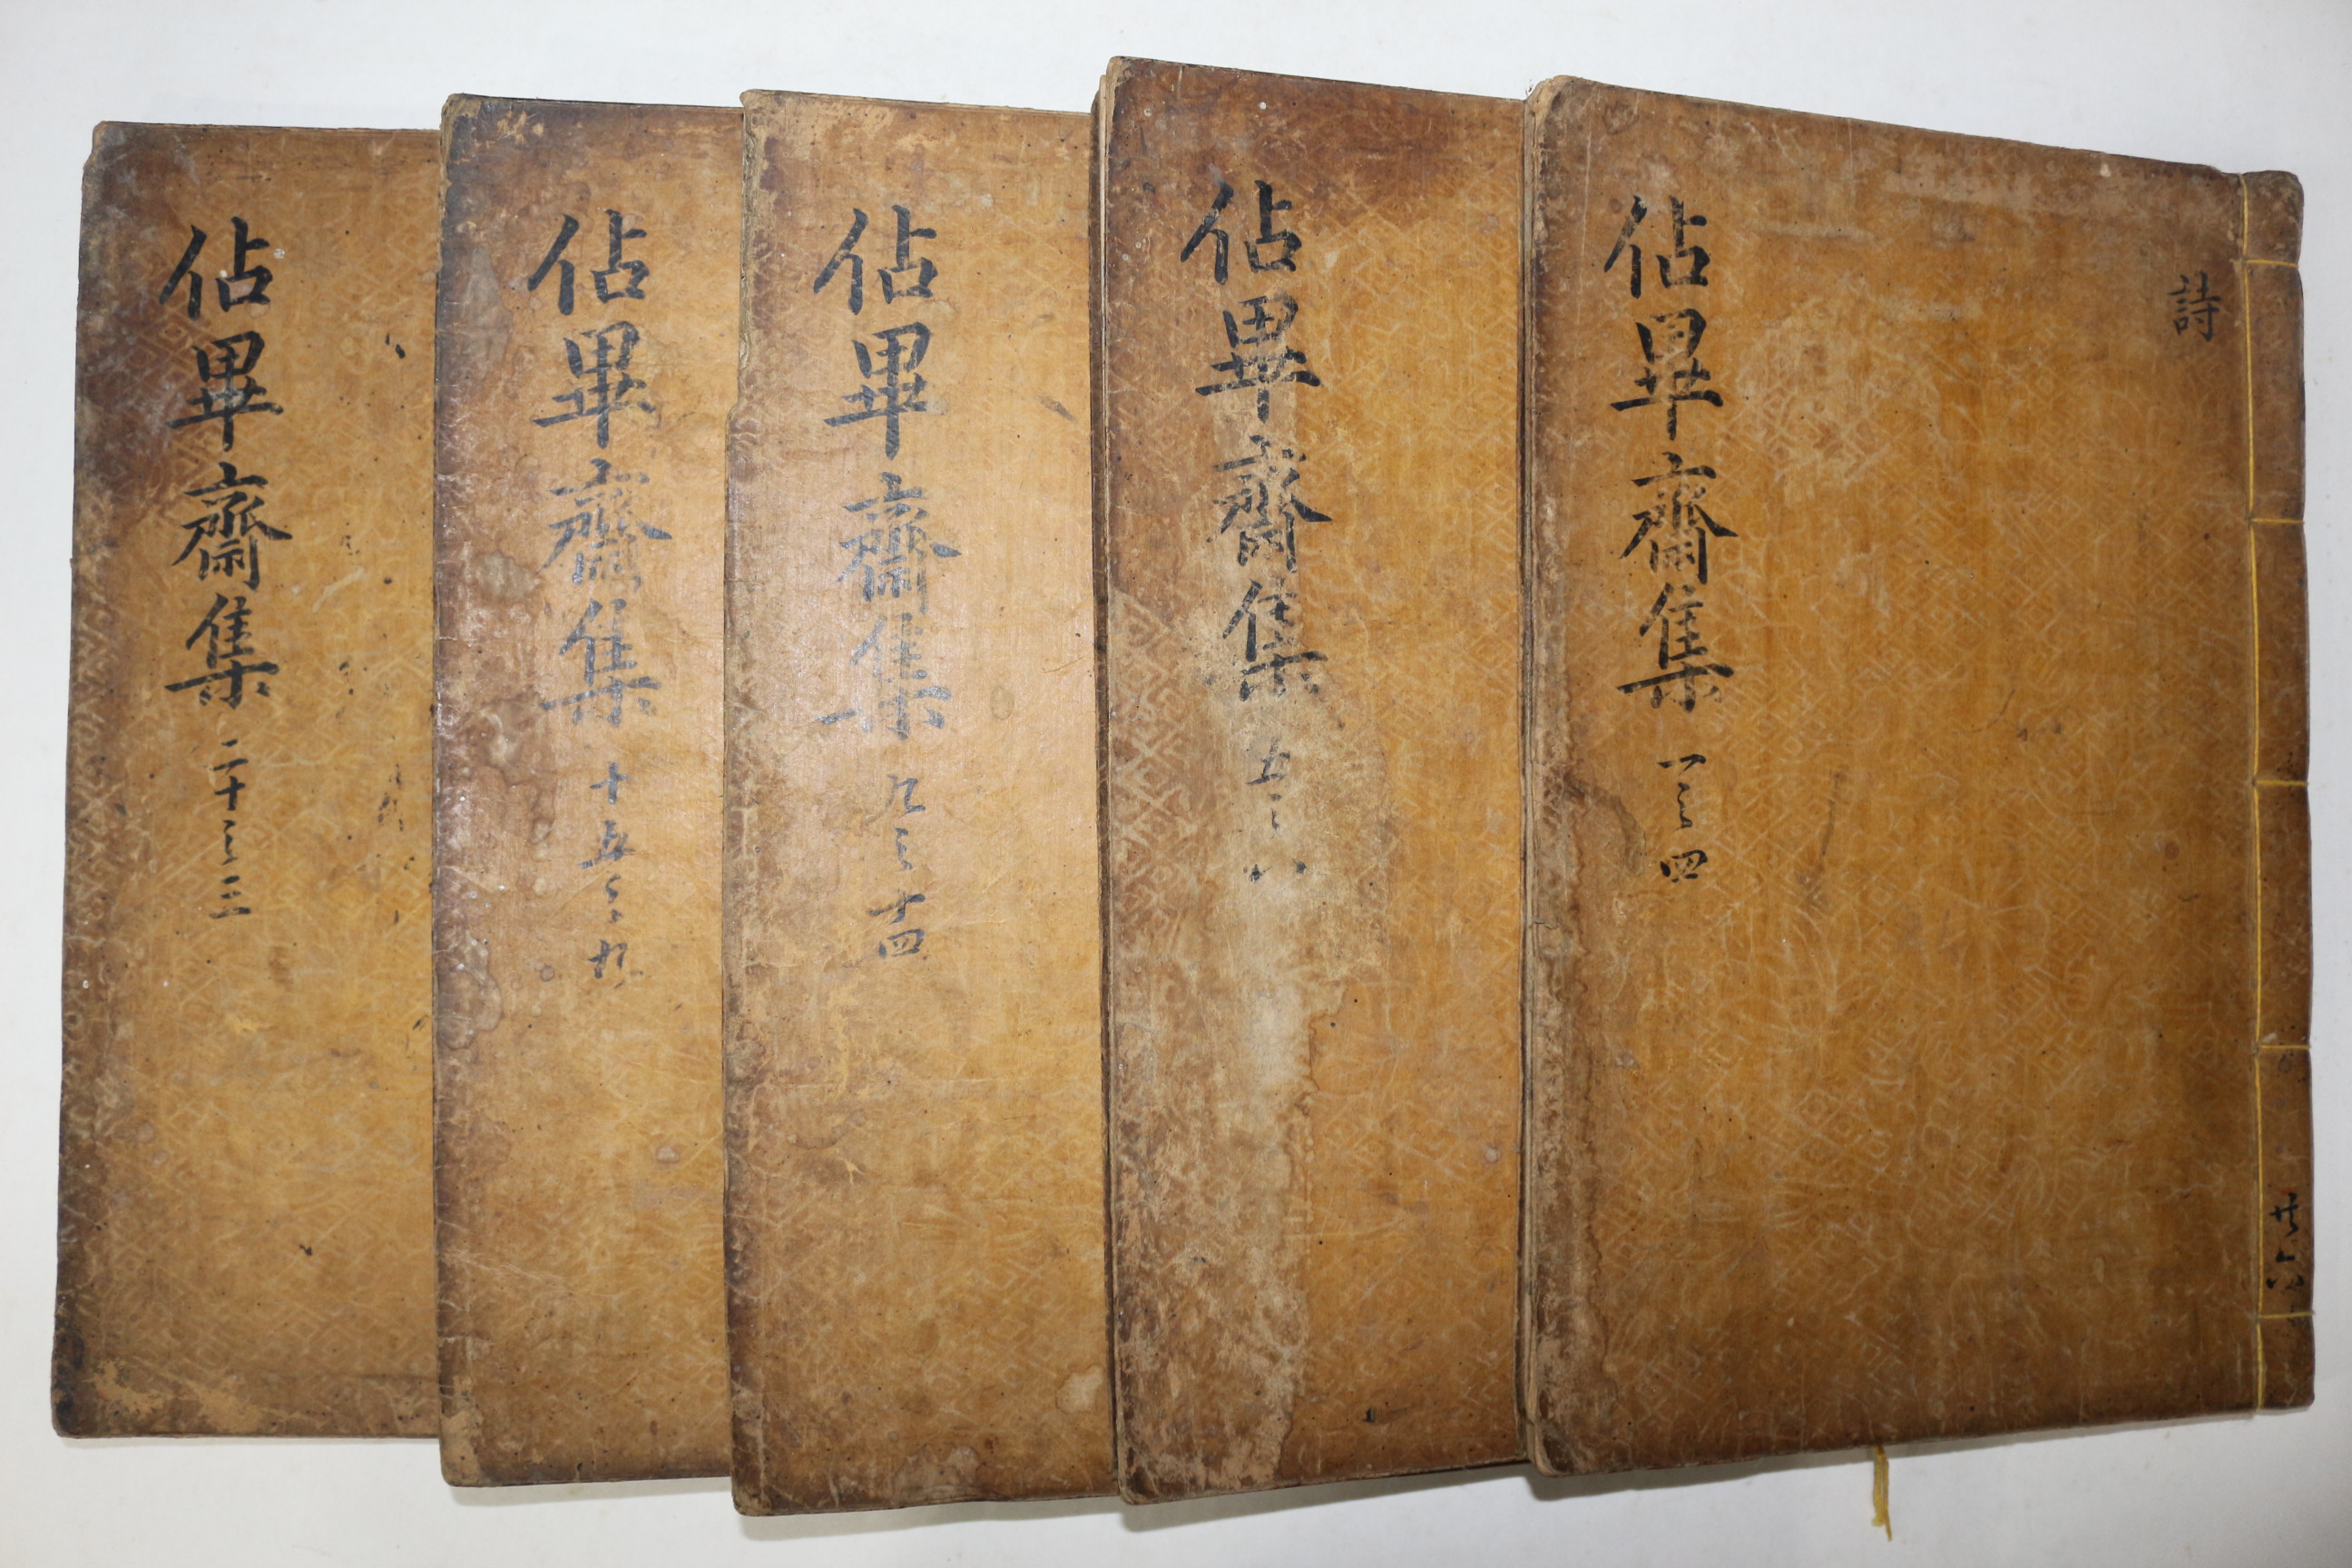 詩
共六
佔畢齋集 一之四
佔畢齋集 五之八
佔畢齋集 九之十四
佔畢齋集 十五之十九
佔畢齋集 二十之二三